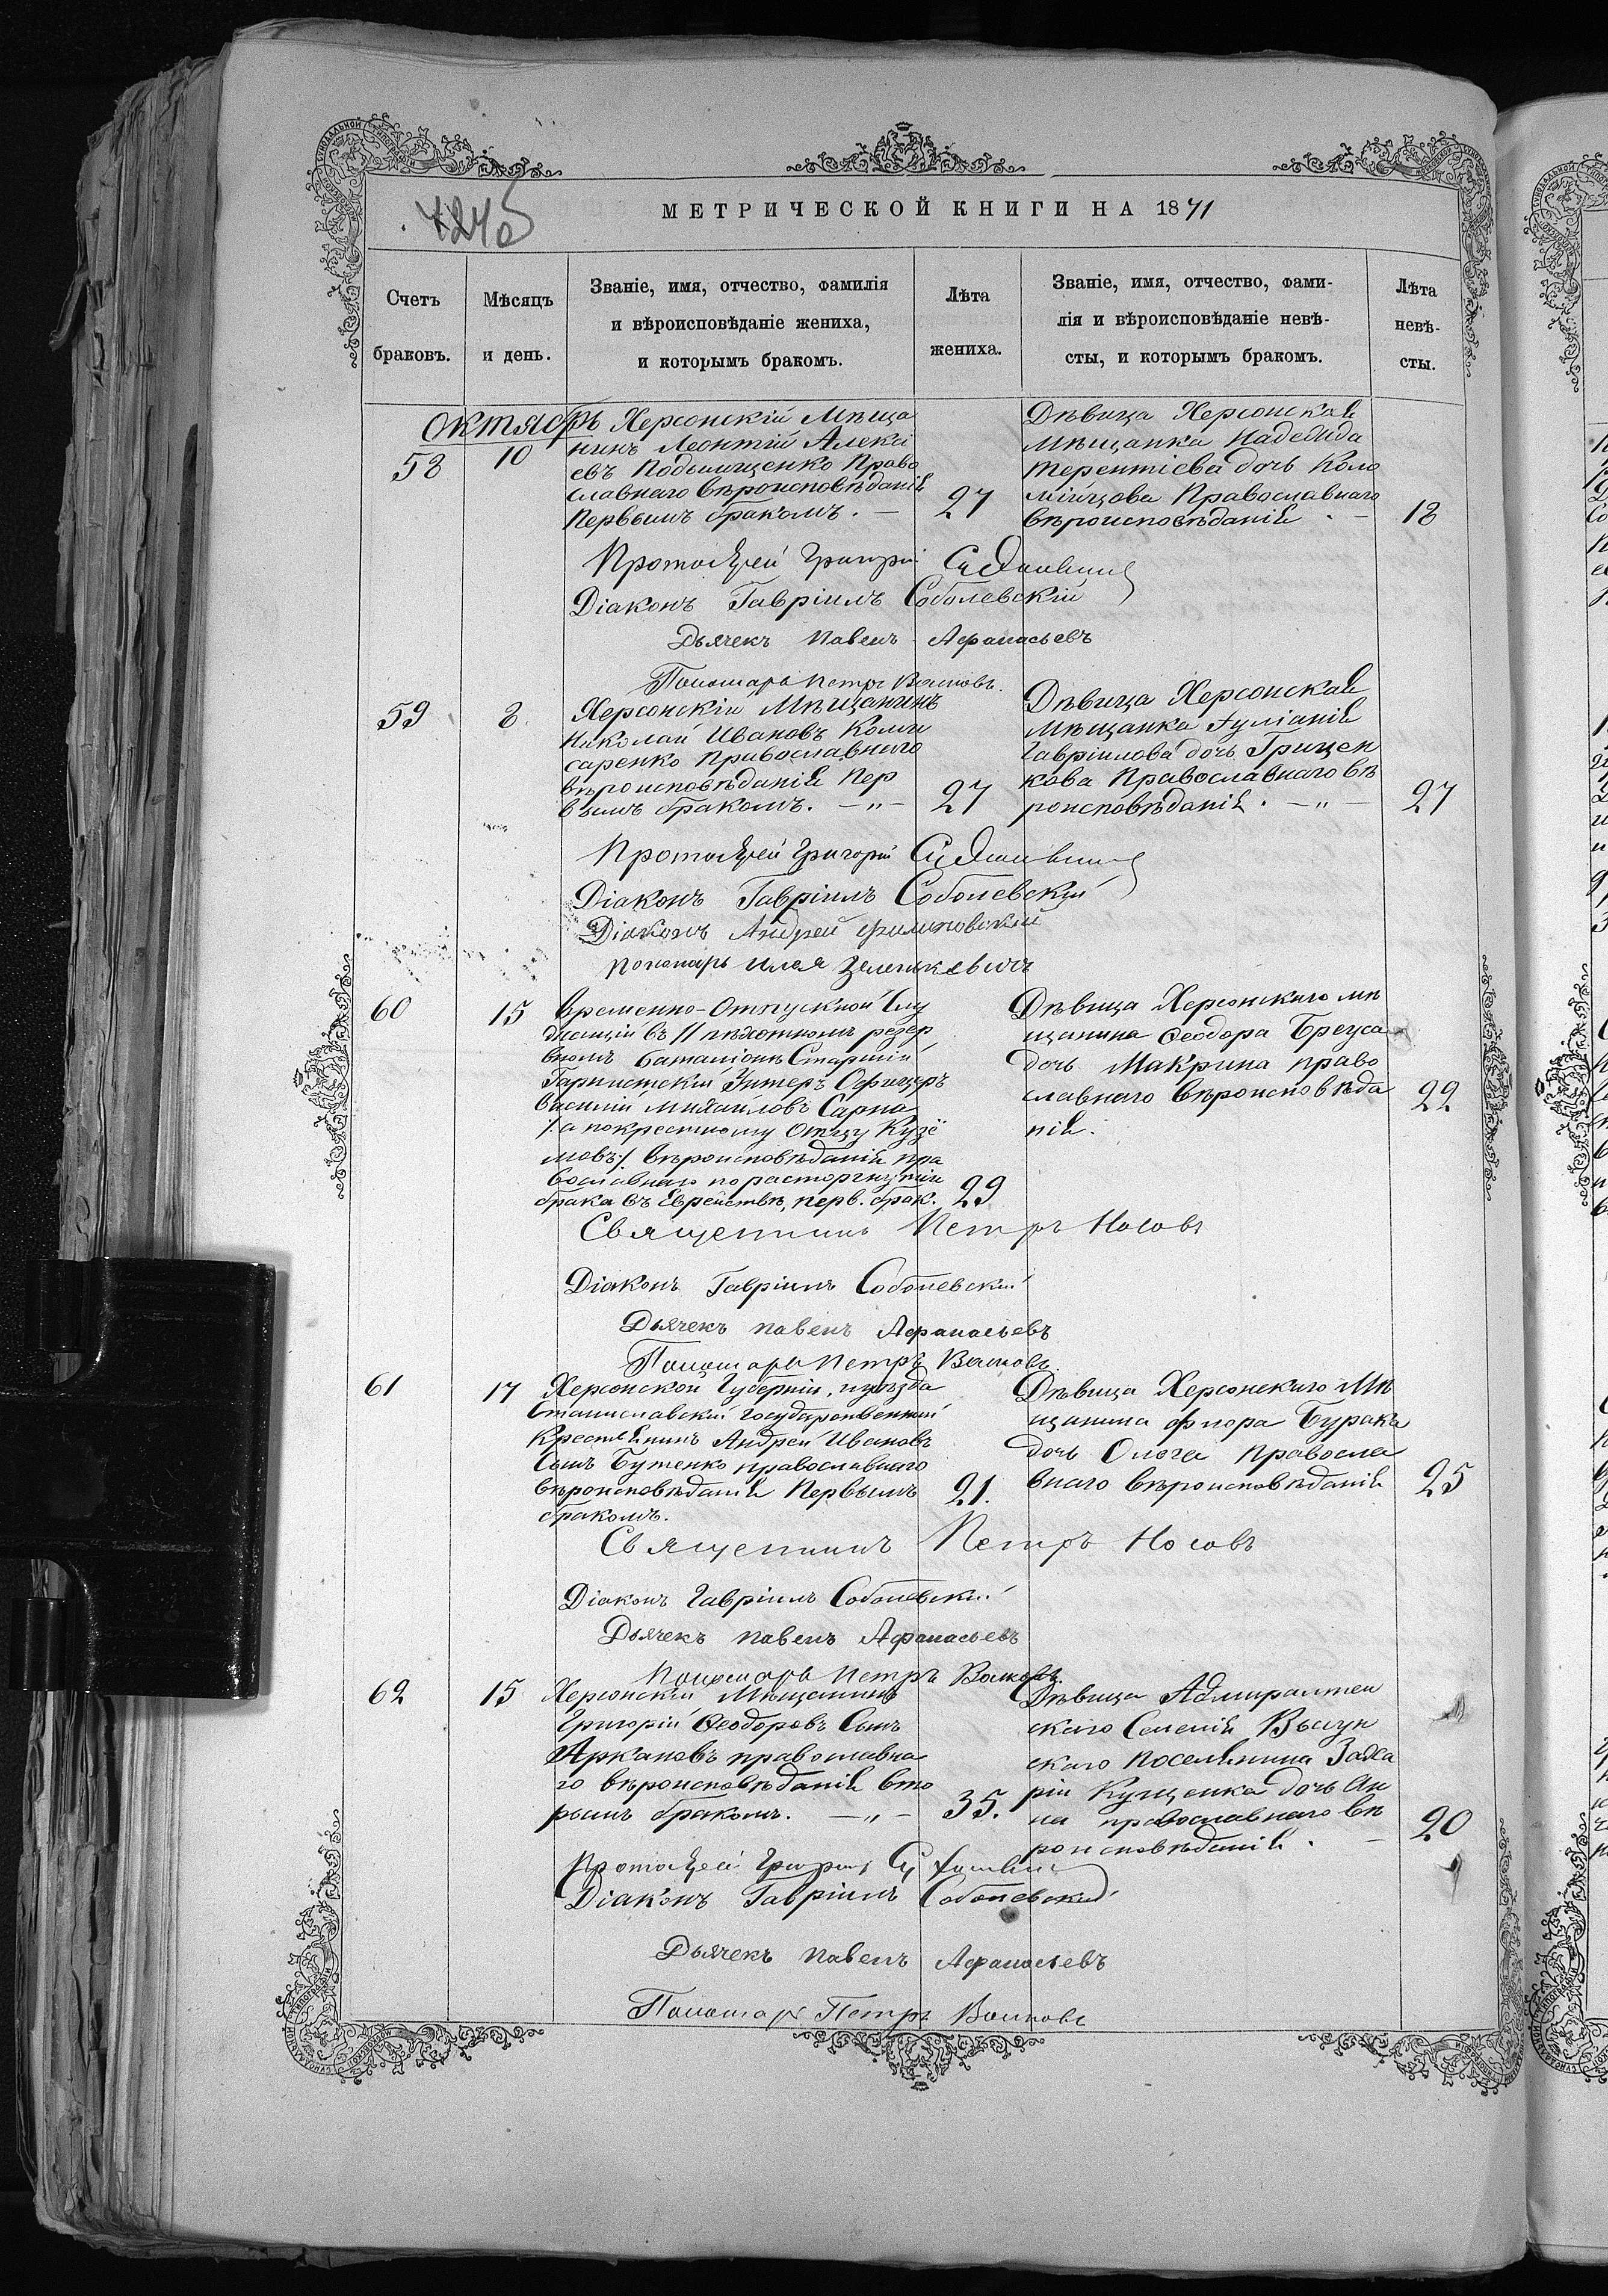 МЕТРИЧЕСКОЙ КНИГИ НА 1871
Счетъ браковъ.
Мѣсяцъ и день.
Званіе, имя, отчество, фамилія
и вѣроисповѣданіе жениха,
и которымъ бракомъ.
Лѣта жениха.
Званіе, имя, отчество, фами-
лія и вѣроисповѣданіе невѣ-
сты, и которымъ бракомъ.
Лѣта невѣ-
сты.
Октябрь
58
10
Херсонскій Мѣща
нинъ Леонтій Алексі
евъ Право
славнаго вѣроисповѣданія
Первымъ бракомъ. —
27
Дѣвица Херсонская
Мѣщанка Надежда
Терентіева дочь Коло
мійцова Православнаго
вѣроисповѣданія. —
18
Протоіерей Григорій
Діаконъ Гавріилъ Соболевскій
Дьячекъ Павелъ Афанасьевъ
Пономарь Петръ Волковъ.
59
8
Херсонскій Мѣщанинъ
Николай Ивановъ Коми
саренко Православнаго
вѣроисповѣданія Пер
вымъ бракомъ. — „ —
27
Дѣвица Херсонская
Мѣщанка Іуліанія
Гавріилова дочь Грицен
кова Православнаго вѣ
роисповѣданія. — „ —
27
Протоіерей Григорій
Діаконъ Гавріилъ Соболевскій
Діаконъ Андрей Филиповскій
Пономарь Илія Зеленкевичъ
60
15
Временно-Отпускной Слу
жащій въ 11 пѣхотномъ резер
вномъ баталіонѣ Старшій
Унтеръ Офицеръ
Василій Михайловъ Сарна
/: а по крестному Отцу Кузё
мовъ :/ вѣроисповѣданія пра
вославнаго по расторгнутіи
брака въ Еврействѣ, перв. брак.
29
Дѣвица Херсонскаго мѣ
щанина Ѳеодора Бреуса
дочь Макрина право
славнаго вѣроисповѣда
нія.
22
Священникъ Петръ Носовъ
Діаконъ Гавріилъ Соболевскій
Дьячекъ Павелъ Афанасьевъ
Пономарь Петръ Волковъ.
61
17
Херсонской Губерніи, и уѣзда
Станиславскій государственный
Крестьянинъ Андрей Ивановъ
Сынъ Бутенко православнаго
вѣроисповѣданія Первымъ
бракомъ.
21.
Дѣвица Херсонскаго Мѣ
щанина Флора Бурака
дочь Ольга правосла
внаго вѣроисповѣданія
25
Священникъ Петръ Носовъ
Діаконъ Гавріилъ Соболевскій
Дьячекъ Павелъ Афанасьевъ
Пономарь Петръ Волковъ.
62
15
Херсонскій Мѣщанинъ
Григорій Ѳеодоровъ Сынъ
Аркановъ православна
го вѣроисповѣданія вто
рымъ бракомъ. — „ —
35.
Дѣвица Адмиралтей
скаго Селенія Высун
скаго поселянина Заха
рія Куценка дочь Ан
на православнаго вѣ
роисповѣданія. —
20
Протоіерей Григорій
Діаконъ Гавріилъ Соболевскій
Дьячекъ Павелъ Афанасьевъ
Пономарь Петръ Волковъ